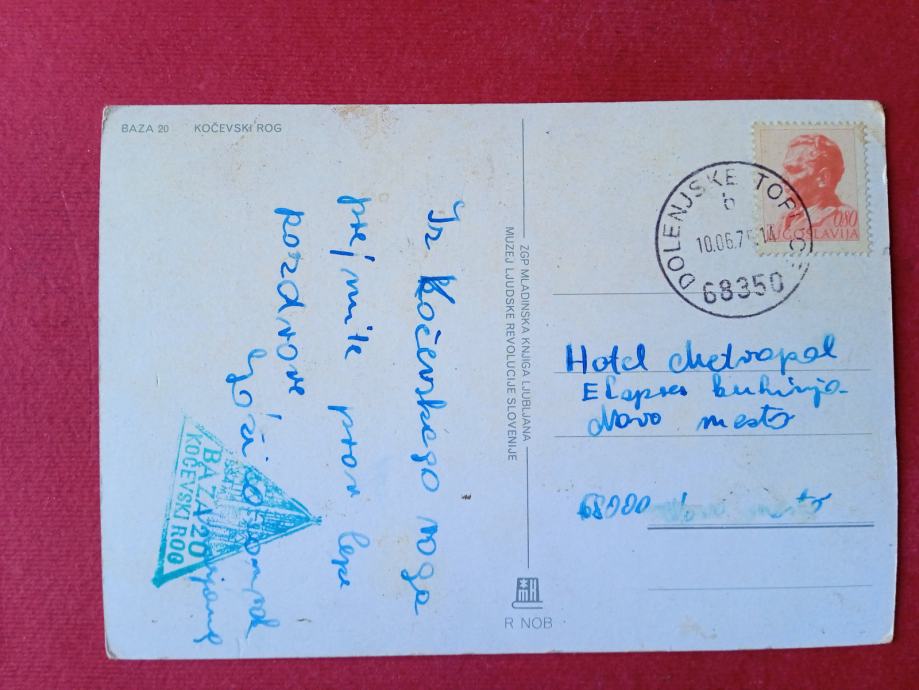 BAZA 20 KOČEVSKI ROG
Iz Kočevskega roga
prejmite prav lepe
pozdrave
BAZA 20
KOČEVSKI ROG
ZGP MLADINSKA KNJIGA LJUBLJANA
MUZEJ LJUDSKE REVOLUCIJE SLOVENIJE
R NOB
0,80
JUGOSLAVIJA
DOLENJSKE TOPLICE
b
10.06.75 14
68350
Hotel Metropol
Ekspres kuhinja
Novo mesto
68000 Novo mesto